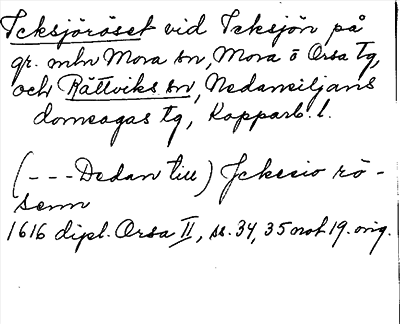 Icksjöröset vid Icksjön på
gr. mln Mora sn, Mora o Orsa tg,
och Rättviks sn, Nedansiljans
domsagas tg, Kopparb. l.
(---Dedan till) Jcksio rö-
senn
1616 dipl. Orsa II, ss. 34, 35 not 19. orig.